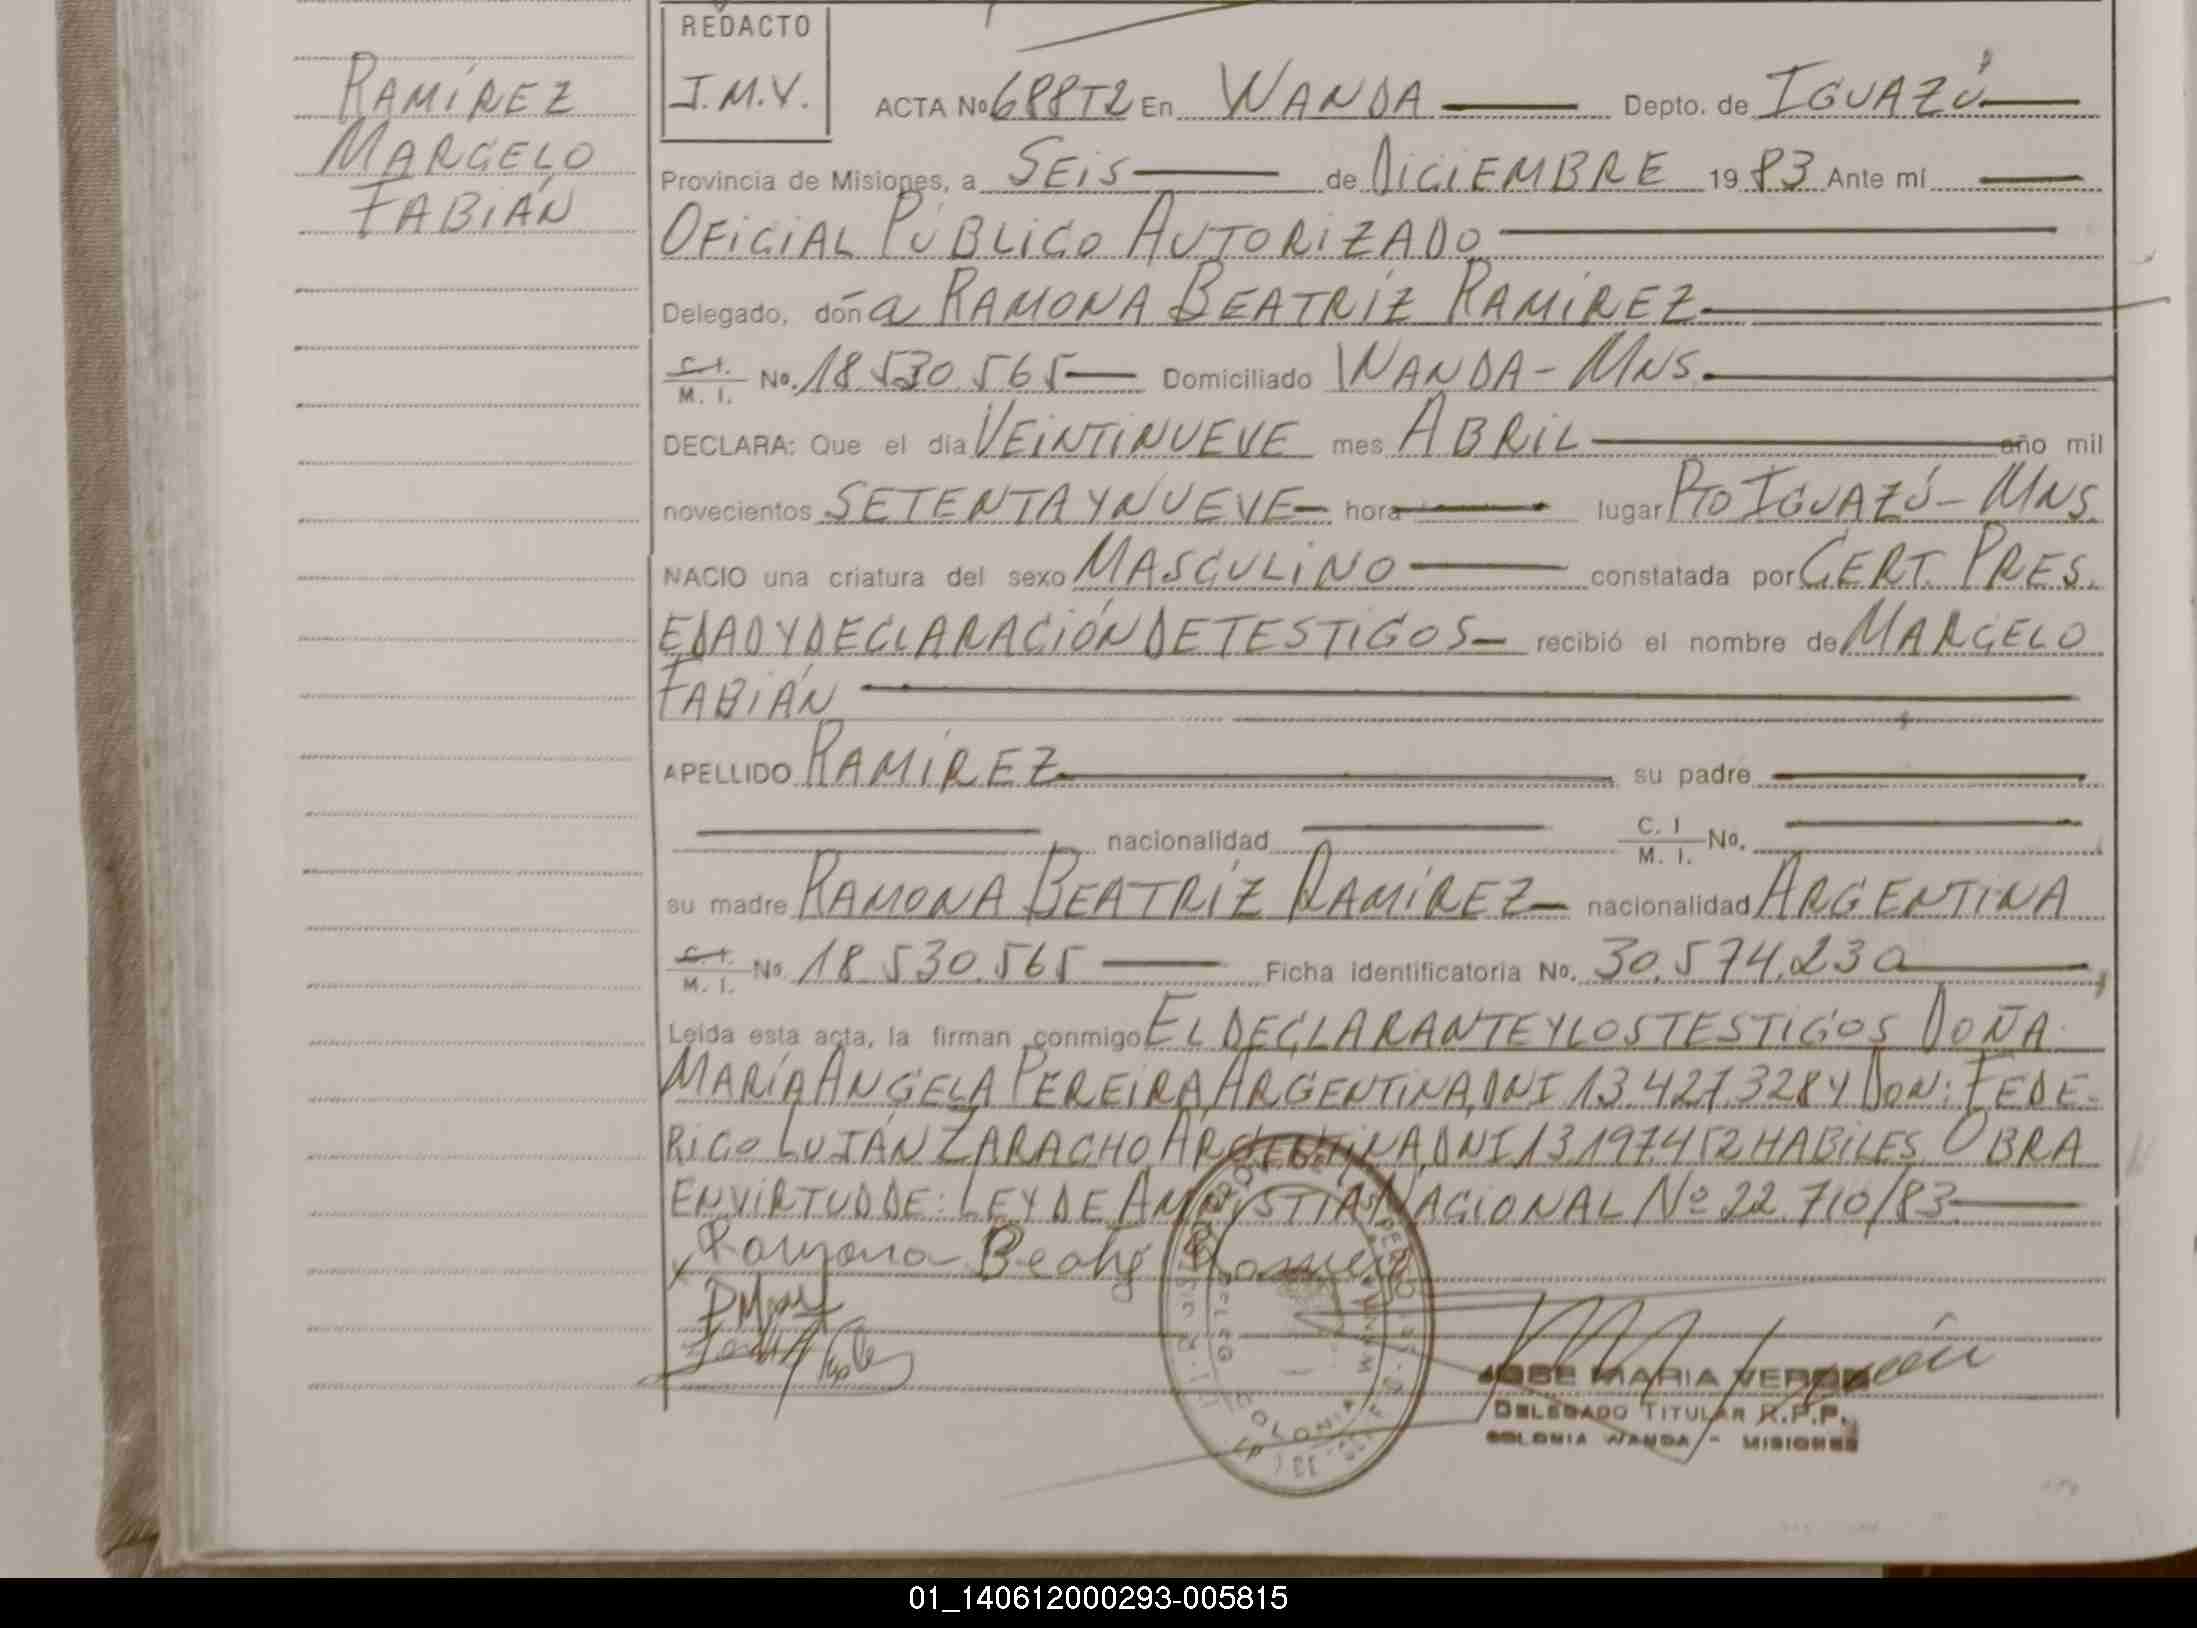 RAMÍREZ
MARCELO
FABIÁN
REDACTO
J.M.V.
ACTA No 688T2 En WANDA Depto. de IGUAZÚ
Provincia de Misiones, a SEIS de DICIEMBRE 19 83 Ante mí
OFICIAL PÚBLICO AUTORIZADO
Delegado, doña RAMONA BEATRÍZ RAMÍREZ
C.I. M. I. No. 18.530.565 Domiciliado WANDA - MNS.
DECLARA: Que el día VEINTINUEVE mes ABRIL año mil
novecientos SETENTA Y NUEVE hora lugar PTO IGUAZÚ - MNS.
NACIO una criatura del sexo MASCULINO constatada por CERT. PRES.
EDAD Y DECLARACIÓN DE TESTIGOS recibió el nombre de MARCELO
FABIÁN
APELLIDO RAMÍREZ su padre
nacionalidad C. I M. I. No.
su madre RAMONA BEATRÍZ RAMÍREZ nacionalidad ARGENTINA
C.I. M. I. No. 18.530.565 Ficha identificatoria No. 30.574.230
Leída esta acta, la firman conmigo EL DECLARANTE Y LOS TESTIGOS DOÑA
MARÍA ANGELA PEREIRA, ARGENTINA, DNI 13.427.328 Y DON: FEDE-
RICO LUJÁN ZARACHO ARGENTINA, DNI 13.197.452 HABILES. OBRA
EN VIRTUD DE: LEY DE AMNISTIA NACIONAL Nº 22.710/83
Ramona Beatriz Ramirez
JOSE MARIA VERON
DELEGADO TITULAR R.P.P.
COLONIA WANDA - MISIONES
COLONIA WANDA
01_140612000293-005815